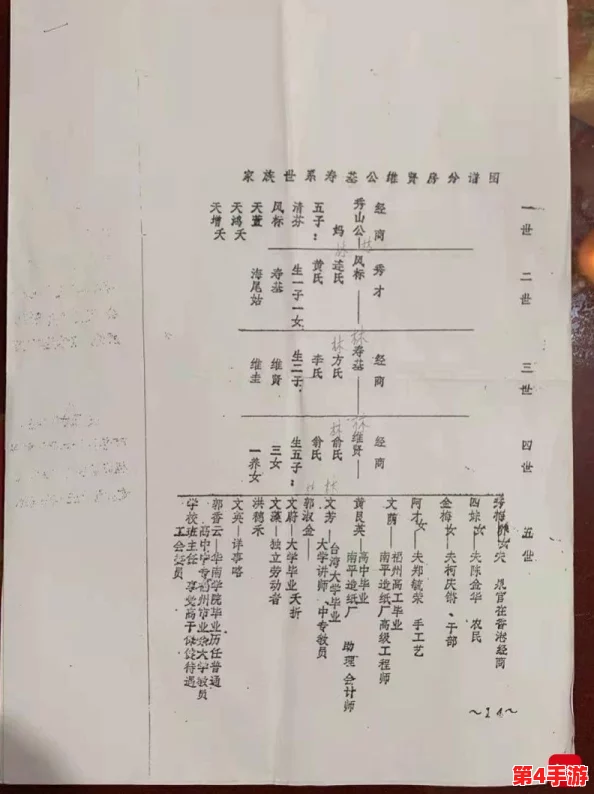 家族世系寿基公维贤房分谱图
一世
经商
秀山公
妈
五子：
清芬
凤标
天萱
天鸿夭
天增夭
二世
秀才
凤标
林连氏
黄氏
生一子一女
寿基
海尾姑
三世
经商
林寿基
林方氏
李氏
生二子
维贤
维圭
四世
经商
林维贤
林俞氏
俞氏
生五子：
三女
一养女
五世
四妹女—夫陈金华 农民
金梅女—夫柯庆锵、干部
阿才女—夫郑毓荣 手工艺
文荫—福州高工毕业
南平造纸厂高级工程师
黄良英—高中毕业
南平造纸厂 助理会计师
林文芳—台湾大学毕业
大学讲师、中专教员
郭淑金—
文蔚—大学毕业夭折
文藻—独立劳动者
洪穗禾
文英—详事略
郭香云—华南学院毕业历任普通
高中中专福州市业余大学教员
学校班主任 享受高干保健待遇
工会委员
第4手游